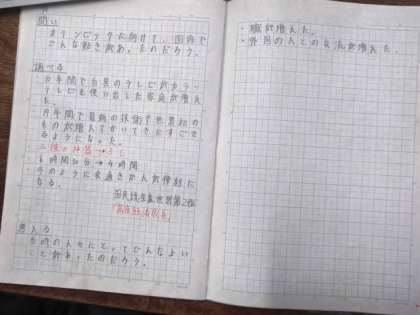 問い
オリンピックに向けて、国内で
どんな動きがあったのだろう。
調べる
・10年間で白黒のテレビがカラー
テレビを使い出した家庭が増え
た。
・何年間で最新の技術や世界初の
ものが増えてかいてきにすごせ
るようになった。
三種の神器→3C
6時間30分→4時間
・今のように交通きかんが便利に
なる。
国民総生産世界第2位
「高度経済成長」
考える
当時の人々にとってどんなよい
ことがあったのだろう。
・職が増えた。
・外国の人との交流が増えた。